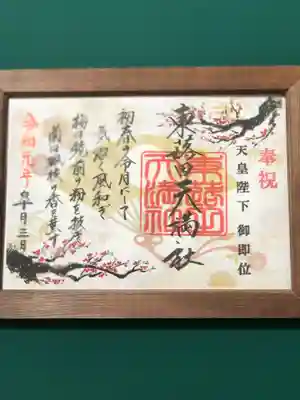 奉祝
天皇陛下 御即位
東蕗田天満社
初春の令月にして
気淑く風和ぎ
梅は鏡前の粉を披き
蘭は珮後の香を薫す
令和元年